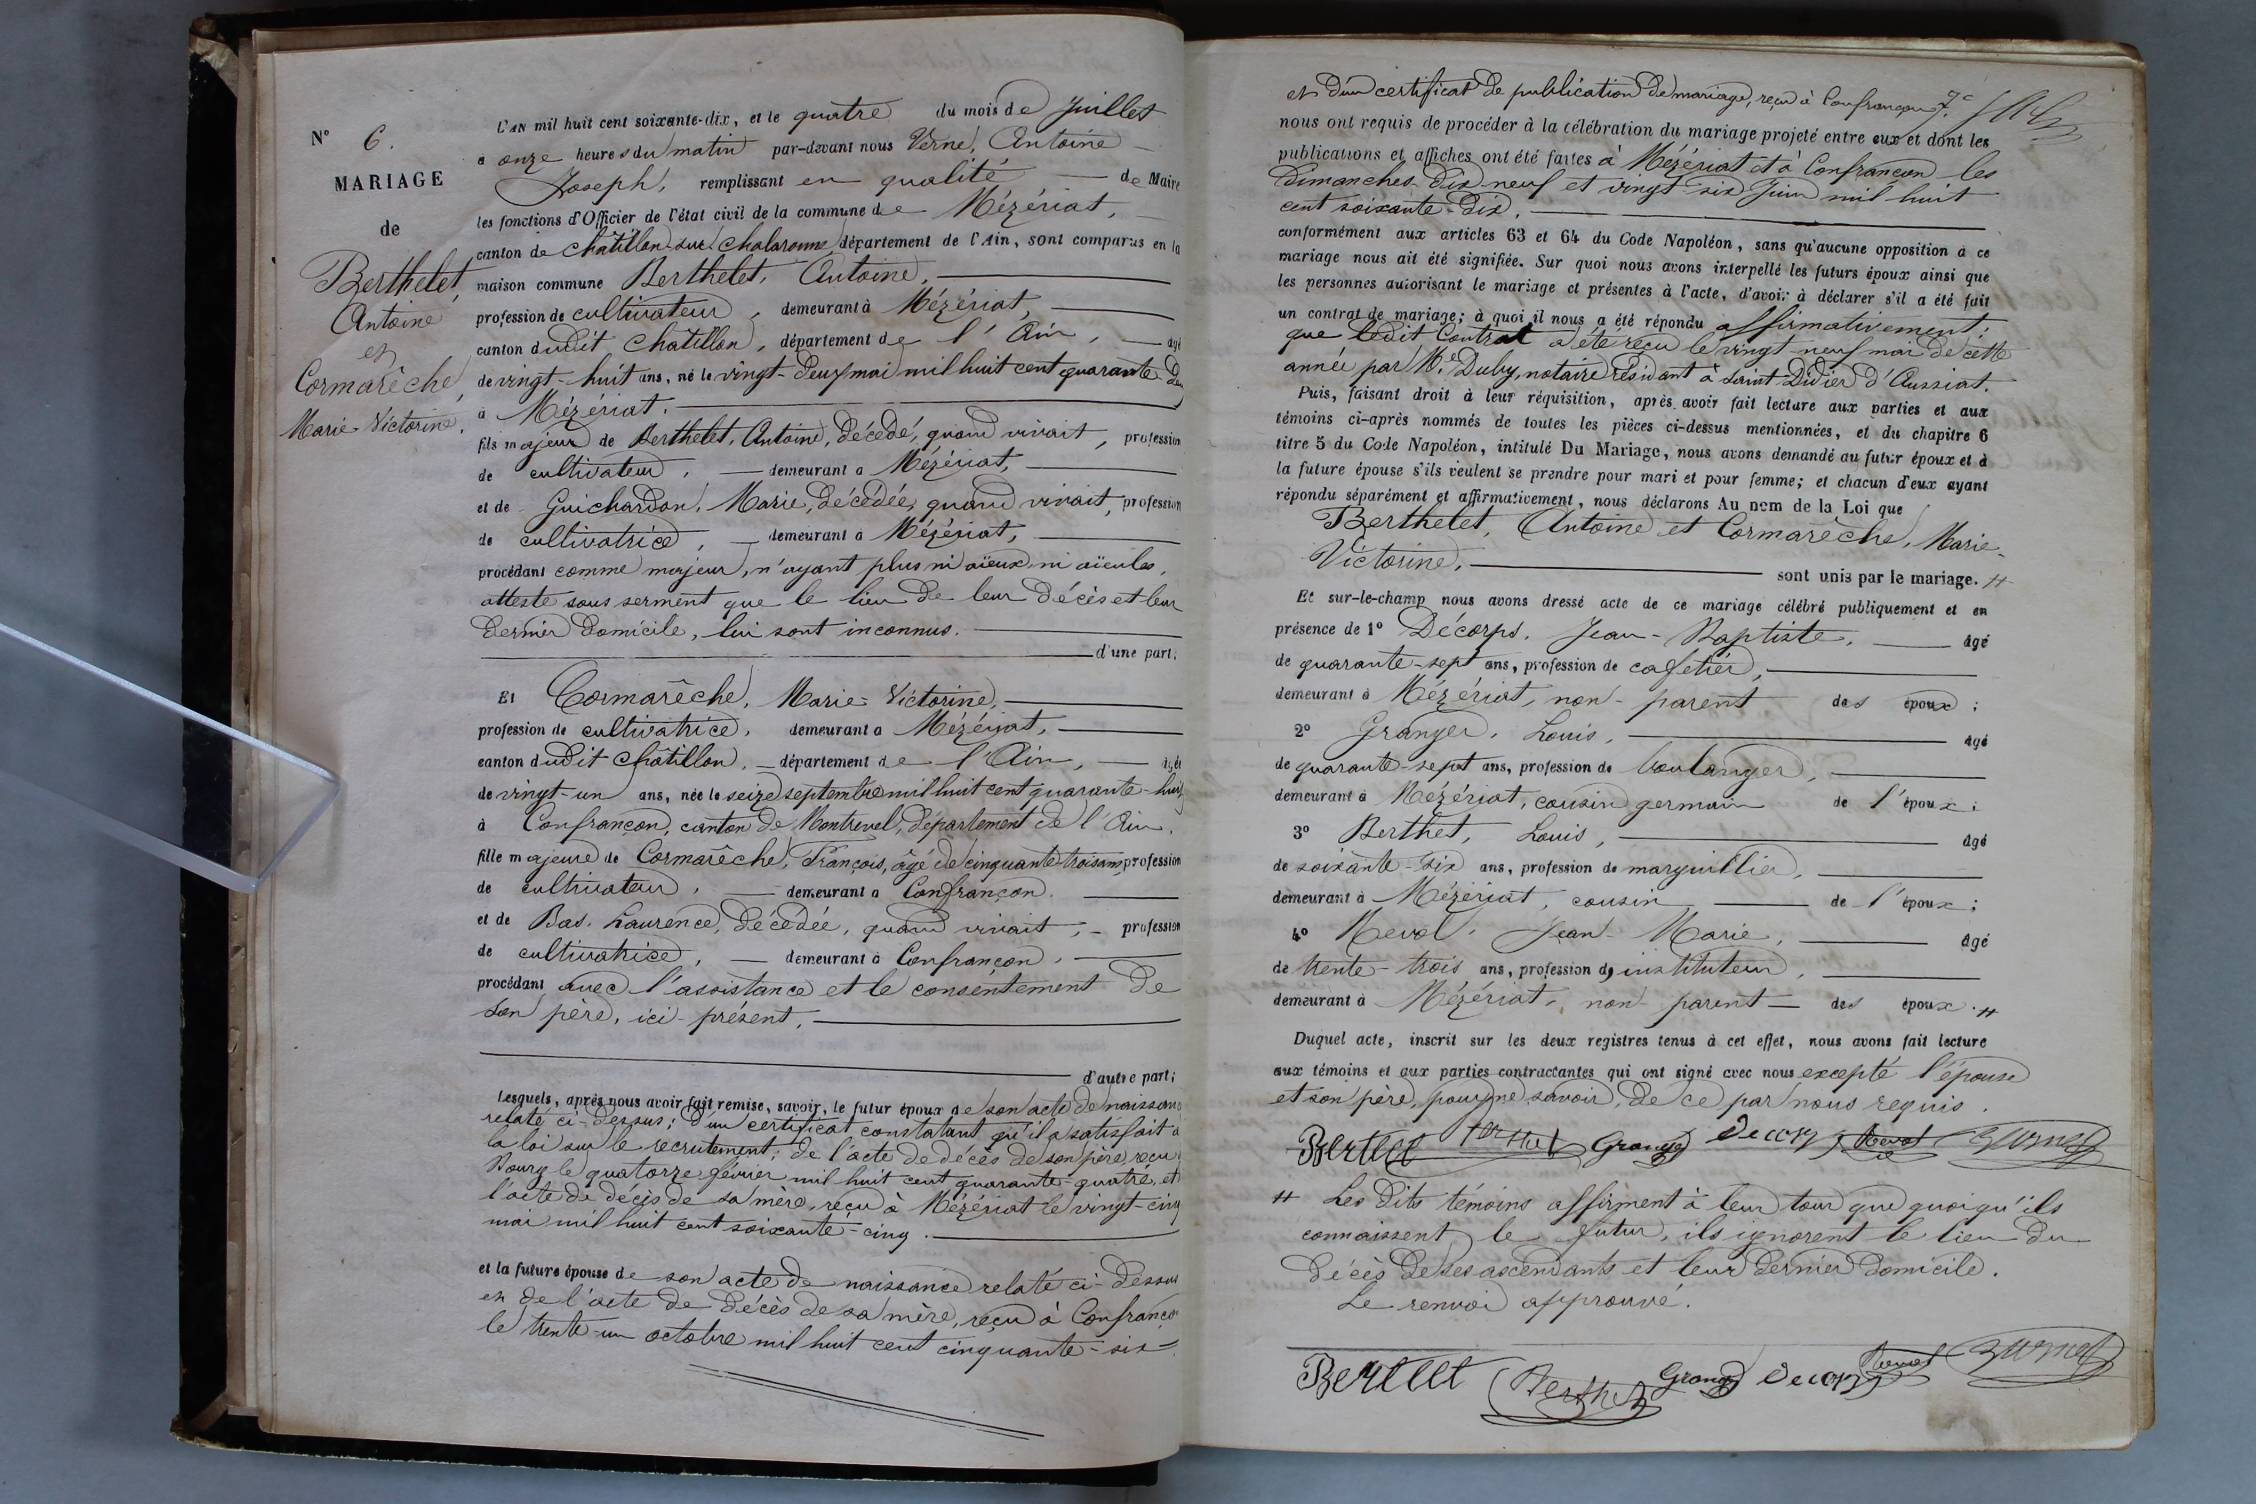 N° 6.
MARIAGE
de
Berthelet,
Antoine
et
Cormarêche,
Marie-Victorine.
L'AN mil huit cent soixante-dix, et le quatre du mois de Juillet
à onze heures du matin par-devant nous Verne, Antoine
Joseph, remplissant en qualité de Maire
les fonctions d'Officier de l'état civil de la commune de Mézériat,
canton de Châtillon-sur-Chalaronne département de l'Ain, sont comparus en la
maison commune Berthelet, Antoine,
profession de cultivateur, demeurant à Mézériat,
canton dudit Chatillon, département de l'Ain, agé
de vingt-huit ans, né le vingt-deux mai mil huit cent quarante-deux
à Mézériat.
fils majeur de Berthelet, Antoine, décédé, quand vivait, profession
de cultivateur, demeurant à Mézériat,
et de Guichardon, Marie, décédée, quand vivait, profession
de cultivatrice, demeurant à Mézériat,
procédant comme majeur, n'ayant plus ni aïeux ni aïeules,
atteste sous serment que le lieu de leur décès et leur
dernier domicile, lui sont inconnus.
d'une part;
Et Cormarêche, Marie-Victorine,
profession de cultivatrice, demeurant à Mézériat,
canton dudit Châtillon, département de l'Ain, agée
de vingt-un ans, née le seize septembre mil huit cent quarante-huit
à Confrançon, canton de Montrevel, département de l'Ain,
fille majeure de Cormarêche, François, âgé de cinquante-trois ans, profession
de cultivateur, demeurant à Confrançon.
et de Bas, Laurence, décédée, quand vivait, profession
de cultivatrice, demeurant à Confrançon,
procédant avec l'assistance et le consentement de
son père, ici-présent,
d'autre part;
Lesquels, après nous avoir fait remise, savoir, le futur époux de son acte de naissance
relaté ci-dessus; d'un certificat constatant qu'il a satisfait à
la loi sur le recrutement; de l'acte de décès de son père reçu à
Bourg le quatorze février mil huit cent quarante-quatre, et
l'acte de décès de sa mère, reçu à Mézériat le vingt-cinq
mai mil huit cent soixante-cinq.
et la future épouse de son acte de naissance relaté ci-dessus
et de l'acte de décès de sa mère, reçu à Confrançon
le trente-un octobre mil huit cent cinquante-six
et d'un certificat de publication de mariage, reçu à Confrançon
nous ont requis de procéder à la célébration du mariage projeté entre eux et dont les
publications et affiches ont été faites à Mézériat et à Confrançon les
dimanches dix-neuf et vingt-six Juin mil huit
cent soixante-dix,
conformément aux articles 63 et 64 du Code Napoléon, sans qu'aucune opposition à ce
mariage nous ait été signifiée. Sur quoi nous avons interpellé les futurs époux ainsi que
les personnes autorisant le mariage et présentes à l'acte, d'avoir à déclarer s'il a été fait
un contrat de mariage; à quoi il nous a été répondu affirmativement;
que ledit Contrat a été reçu le vingt-neuf mai de cette
année par Me Duby, notaire résidant à Saint-Didier d'Aussiat.
Puis, faisant droit à leur réquisition, après avoir fait lecture aux parties et aux
témoins ci-après nommés de toutes les pièces ci-dessus mentionnées, et du chapitre 6
titre 5 du Code Napoléon, intitulé Du Mariage, nous avons demandé au futur époux et à
la future épouse s'ils veulent se prendre pour mari et pour femme; et chacun d'eux ayant
répondu séparément et affirmativement, nous déclarons Au nom de la Loi que
Berthelet, Antoine et Cormarêche, Marie-
Victorine, sont unis par le mariage. #
Et sur-le-champ nous avons dressé acte de ce mariage célébré publiquement et en
présence de 1° Décorps, Jean-Baptiste, âgé
de quarante-sept ans, profession de cafetier,
demeurant à Mézériat, non-parent des époux;
2° Granger, Louis, âgé
de quarante-sept ans, profession de boulanger,
demeurant à Mézériat, cousin germain de l'époux;
3° Berthet, Louis, âgé
de soixante-six ans, profession de marguillier,
demeurant à Mézériat, cousin de l'époux;
4° Revol, Jean-Marie, âgé
de trente-trois ans, profession d'instituteur,
demeurant à Mézériat, non-parent des époux. #
Duquel acte, inscrit sur les deux registres tenus à cet effet, nous avons fait lecture
aux témoins et aux parties contractantes qui ont signé avec nous excepté l'épouse
et son père, pour ne savoir, de ce par nous requis.
Granger Decorps Revol
# Les dits témoins affirment à leur tour que quoiqu'ils
connaissent le futur, ils ignorent le lieu du
décès de ses ascendants et leur dernier domicile.
Le renvoi approuvé.
Bertelet Berthet Granger Decorps Revol